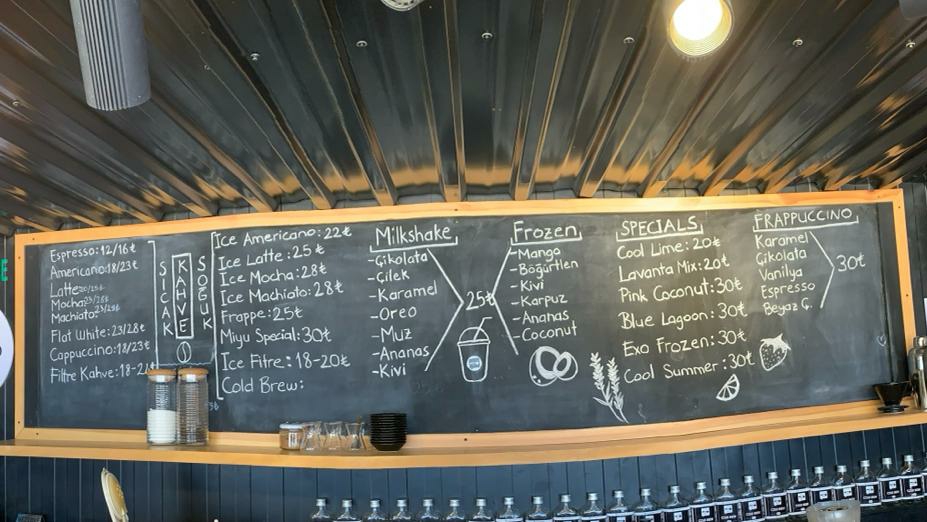 Espresso: 12/16₺
Americano: 18/23₺
Latte
Mocha: 23/28₺
Machiato: 23/28₺
Flat White: 23/28₺
Cappuccino: 18/23₺
Filtre Kahve: 18-2
SICAK
KAHVE
SOĞUK
Ice Americano: 22₺
Ice Latte: 25₺
Ice Mocha: 28₺
Ice Machiato: 28₺
Frappe: 25₺
Miyu Special: 30₺
Ice Fitre: 18-20₺
Cold Brew:
Milkshake
-Çikolata
-Çilek
-Karamel
-Oreo
-Muz
-Ananas
-Kivi
25₺
Frozen
-Mango
-Böğürtlen
-Kivi
-Karpuz
-Ananas
-Coconut
SPECIALS
Cool Lime: 20₺
Lavanta Mix: 20₺
Pink Coconut: 30₺
Blue Lagoon: 30₺
Exo Frozen: 30₺
Cool Summer: 30₺
FRAPPUCCINO
Karamel
Çikolata
Vanilya
Espresso
Beyaz Ç.
30₺